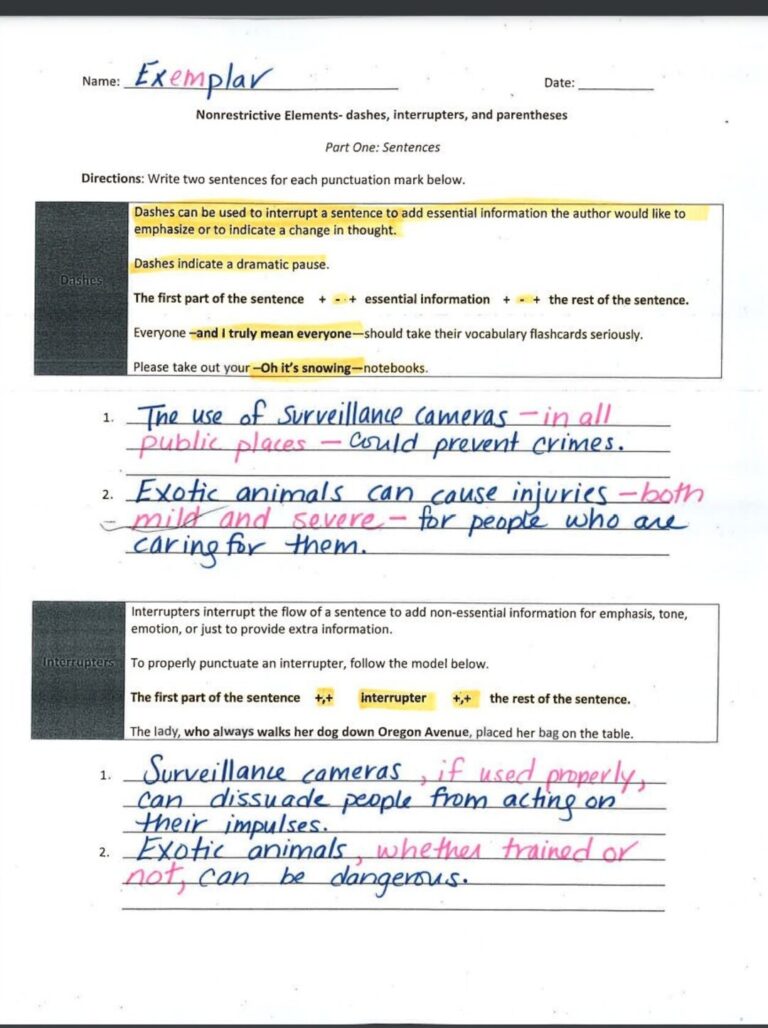 Name: Exemplar Date:
Nonrestrictive Elements- dashes, interrupters, and parentheses
Part One: Sentences
Directions: Write two sentences for each punctuation mark below.
Dashes
Dashes can be used to interrupt a sentence to add essential information the author would like to
emphasize or to indicate a change in thought.
Dashes indicate a dramatic pause.
The first part of the sentence + - + essential information + - + the rest of the sentence.
Everyone –and I truly mean everyone—should take their vocabulary flashcards seriously.
Please take out your –Oh it's snowing—notebooks.
1. The use of surveillance cameras – in all
public places – could prevent crimes.
2. Exotic animals can cause injuries – both
mild and severe – for people who are
caring for them.
Interrupters
Interrupters interrupt the flow of a sentence to add non-essential information for emphasis, tone,
emotion, or just to provide extra information.
To properly punctuate an interrupter, follow the model below.
The first part of the sentence +,+ interrupter +,+ the rest of the sentence.
The lady, who always walks her dog down Oregon Avenue, placed her bag on the table.
1. Surveillance cameras, if used properly,
can dissuade people from acting on
their impulses.
2. Exotic animals, whether trained or
not, can be dangerous.